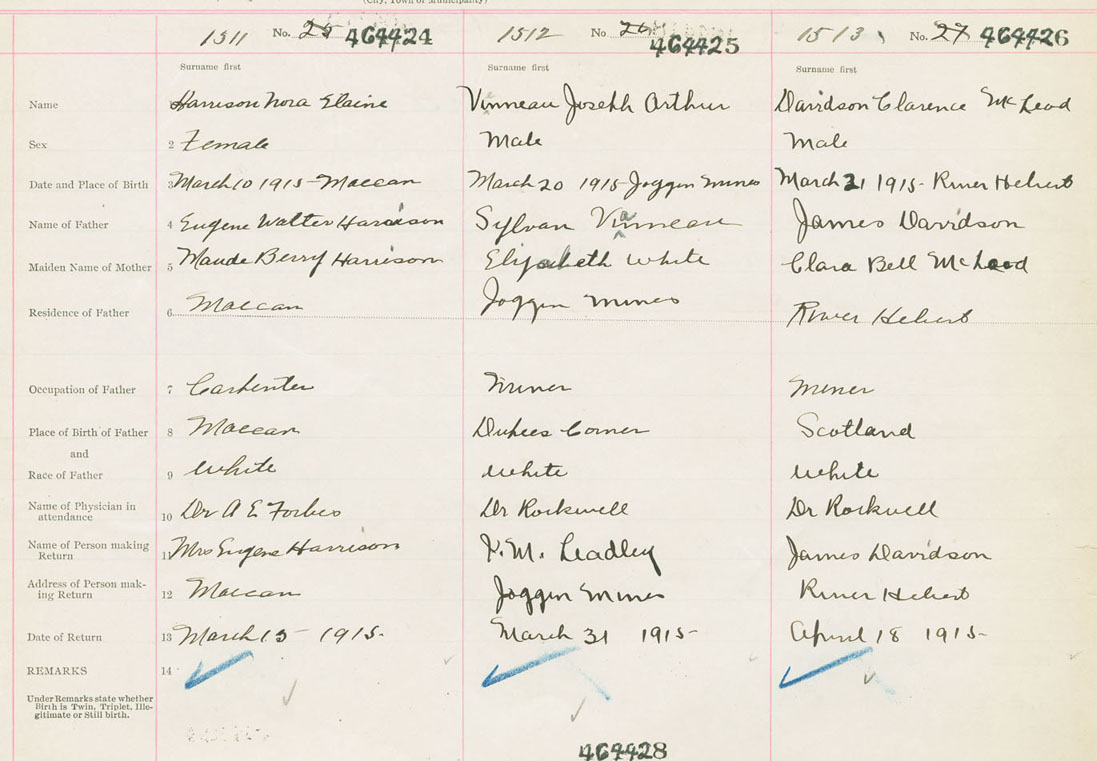 (City, Town or Municipality)
1511 No. 25 464424 1512 No. 26 464425 1513 No. 27 464426
Surname first Surname first Surname first
Name Harrison Nora Elaine Vinneau Joseph Arthur Davidson Clarence McLeod
Sex 2 Female Male Male
Date and Place of Birth 3 March 10 1915 - Maccan March 20 1915 - Joggin Mines March 21 1915 - River Hebert
Name of Father 4 Eugene Walter Harrison Sylvan Vinneau James Davidson
Maiden Name of Mother 5 Maude Berry Harrison Elizabeth White Clara Bell McLeod
Residence of Father 6 Maccan Joggin Mines River Hebert
Occupation of Father 7 Carpenter Miner Miner
Place of Birth of Father 8 Maccan Corner Scotland
and
Race of Father 9 White White White
Name of Physician in
attendance 10 Dr A E Forbes Dr Rockwell Dr Rockwell
Name of Person making
Return 11 Mrs Eugene Harrison Leadley James Davidson
Address of Person mak-
ing Return 12 Maccan Joggin Mines River Hebert
Date of Return 13 March 15 1915- March 31 1915- April 18 1915-
REMARKS 14
Under Remarks state whether
Birth is Twin, Triplet, Ille-
gitimate or Still birth.
464428